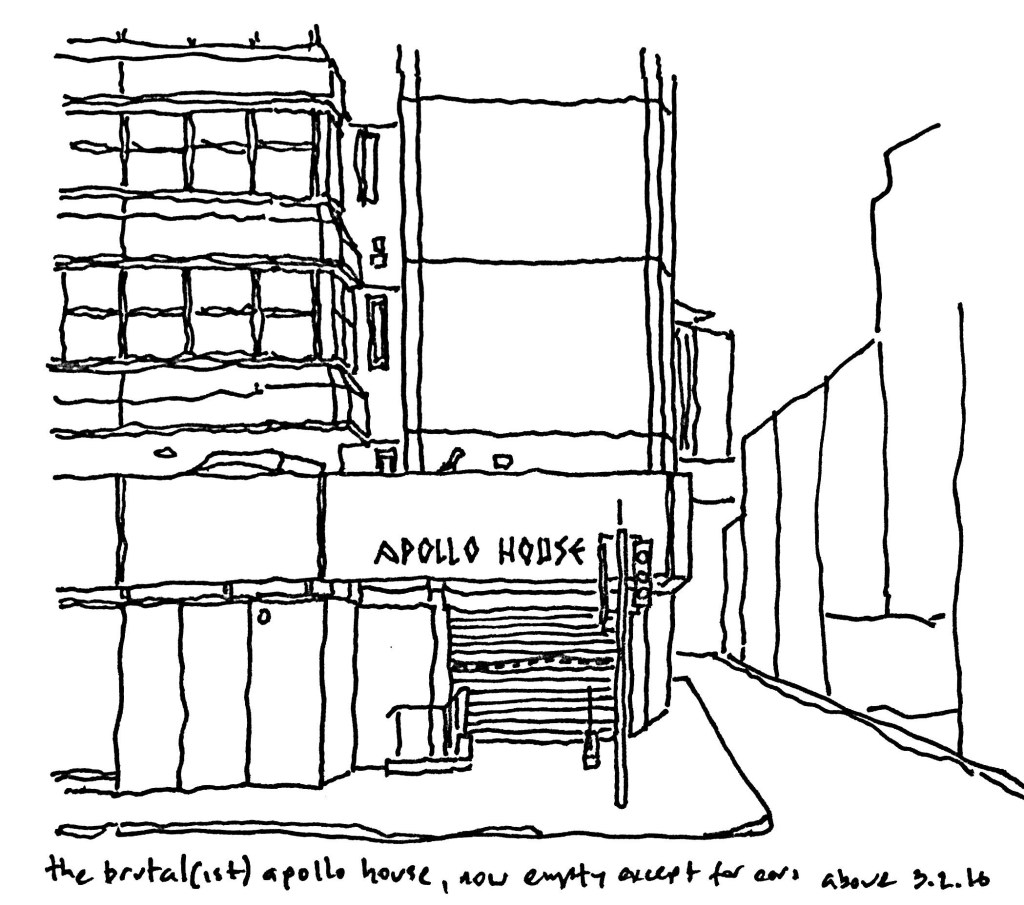 APOLLO HOUSE
the brutal(ist) apollo house, now empty except for above 3.2.16